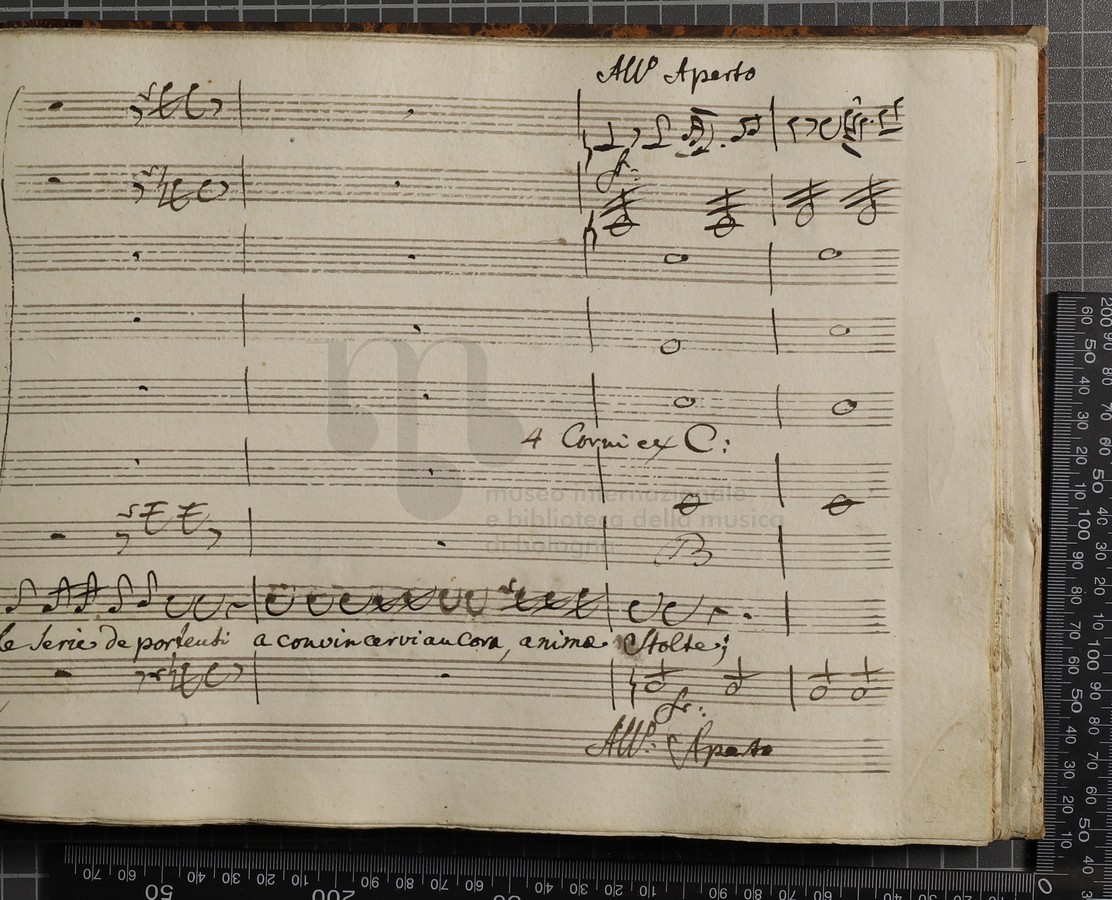 All.º Aperto
fr:
4 Corni ex C:
museo internazionale
e biblioteca della musica
di bologna
le serie de portenti a convincervi ancora, anime Stolte;
fr:
All.º: Aperto